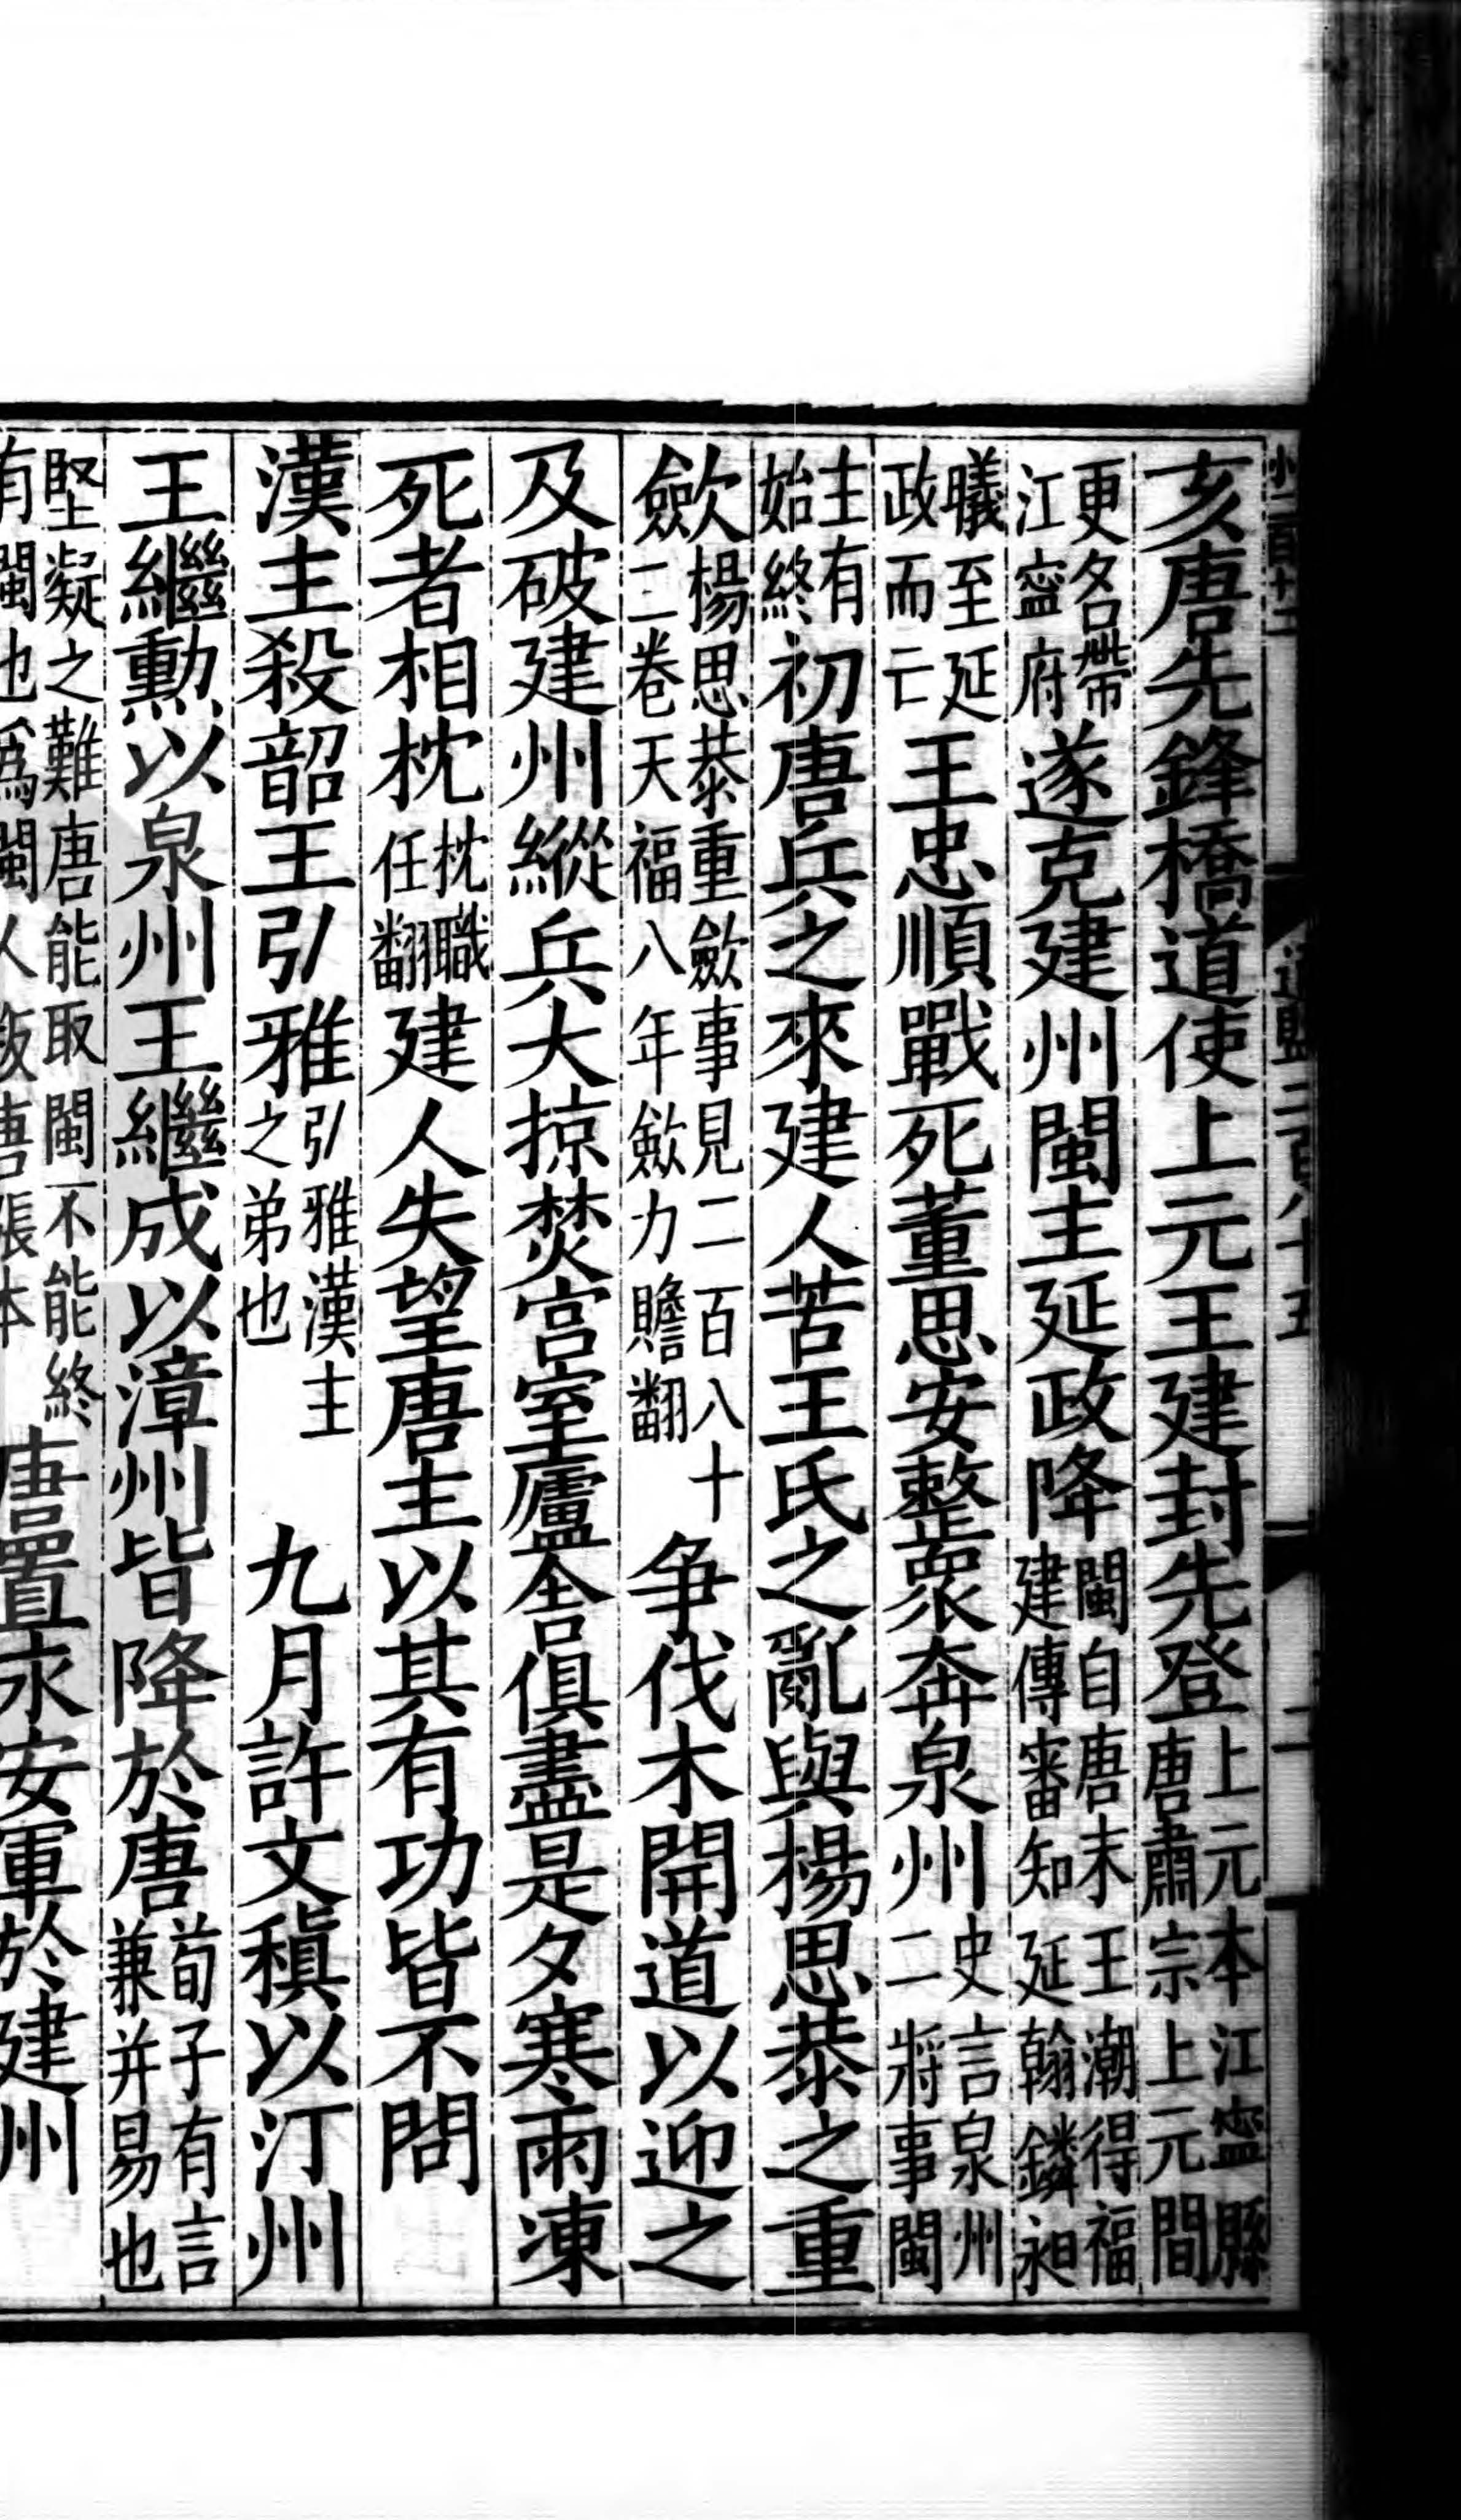 亥唐先鋒橋道使上元王建封先登上元本江寧縣唐肅宗上元間
更名帶江寧府遂克建州閩主延政降閩自唐末王潮得福建傳審知延翰鏻昶
曦至延政而亡王忠順戰死董思安整衆奔泉州史言泉州二將事閩
主有始終初唐兵之來建人苦王氏之亂與楊思恭之重
斂楊思恭重斂事見二百八十二卷天福八年斂力贍翻争伐木開道以迎之
及破建州縱兵大掠焚宫室廬舍俱盡是夕寒雨凍
死者相枕枕職任翻建人失望唐主以其有功皆不問
漢主殺韶王弘雅弘雅漢主之弟也 九月許文稹以汀州
王繼勳以泉州王繼成以漳州皆降於唐荀子有言兼并易也
堅凝之難唐能取閩不能終有閩也爲閩人叛唐張本唐置永安軍於建州